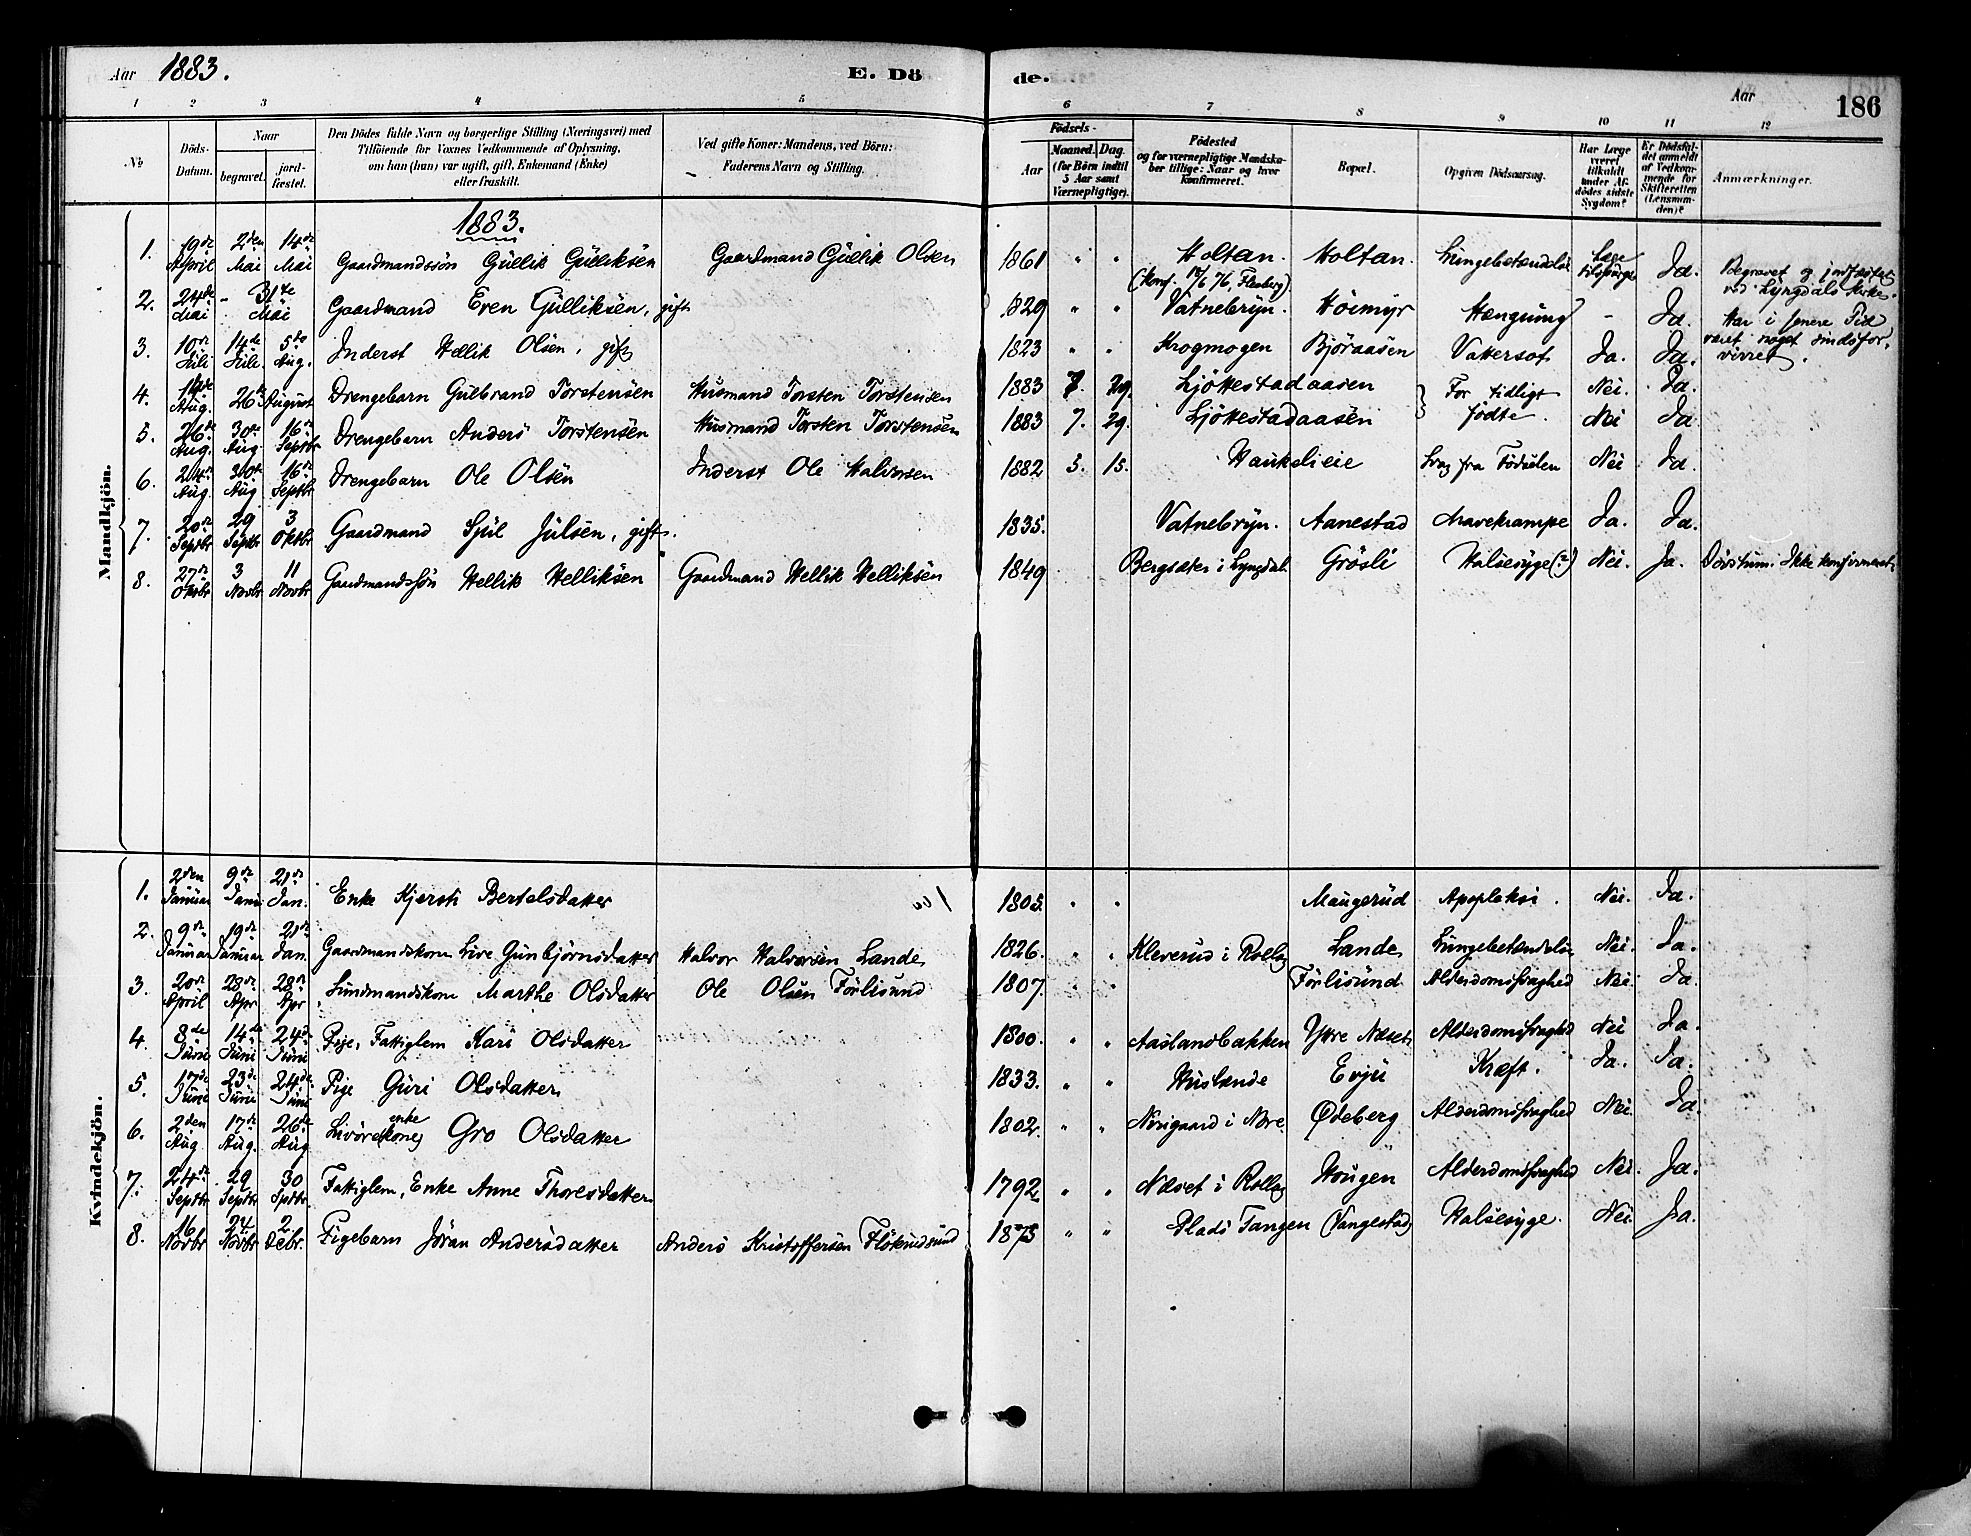 Aar 1883. E. Dö de. Aar 186
1 2 3 4 5 6 7 8 9 10 11 12
No
Döds-Datum.
Naar
begravet.
jord-fæstet.
Den Dödes fulde Navn og borgerlige Stilling (Næringsvei) med
Tilföiende for Voxnes Vedkommende af Oplysning,
om han (hun) var ugift, gift, Enkemand (Enke)
eller fraskilt.
Ved gifte Koner: Mandens, ved Börn:
Faderens Navn og Stilling.
Födsels-
Aar
Maaned. Dag.
(for Börn indtil
5 Aar samt
Værnepligtige).
Födested
og for værnepligtige Mandska-
ber tillige: Naar og hvor
Konfirmeret.
Bopæl.
Opgiven Dödsaarsag.
Har Læge
været
tilkaldt
under Af-
dödes sidste
Sygdom?
Er Dödsfal-
det anmeldt
af Vedkom-
mende for
Skifteretten
(Lensman-
den)?
Anmærkninger.
Mandkjön.
1883.
1. 19de April 2den Mai 14de Mai Gaardmandssön Gullik Gulliksen Gaardmand Gullik Olsen 1861 " " Holtan. (Konf. 76, Flesberg) Holtan. Lungebetændelse Læge Ja. Begravet og jordfæstet ved Lyngdals Kirke.
2. 24de Mai - 31te Mai Gaardmand Even Gulliksen, gift 1829 " " Vatnebryn. Höimyr Hængning - Ja. Har i senere Tid været noget sindsforvirret.
3. 10de Juli 14de Juli 5te Aug. Inderst Hellik Olsen, gift 1823 " " Krogmogen Björaasen Vattersot Ja. Ja.
4. 14de Aug. 26de August Drengebarn Gulbrand Torstensen Husmand Torsten Torstensen 1883 7. 29. Ljökestadaasen For tidligt Nei. Ja.
5. 26de Aug. 30te Aug. 16de Septbr Drengebarn Anders Torstensen Husmand Torsten Torstensen 1883 7. 29. Ljökestadaasen födte. Nei Ja
6. 24de Aug. 30te Aug 16de Septbr Drengebarn Ole Olsen Inderst Ole Halvorsen 1882 5. 15. Haukelieie Svag fra Födselen Nei Ja.
7. 20de Septbr 29 Septbr 3 Oktbr Gaardmand Sjul Julsen, gift. 1835. Vatnebryn. Aanestad Mavekrampe Ja. Ja.
8. 27de Oktbr 3 Novbr 11 Novbr Gaardmandssön Hellik Helliksen Gaardmand Hellik Helliksen 1849 Bergsæter i Lyngdal. Grösli Halsesyge (?) Nei. Ja. Dövstum. Ikke konfirmeret.
Kvindekjön.
1. 2den Januar 9de Janu 21de Jan. Enke Kjersti Bertelsdatter 1805. " " Maugerud Apopleksi. Nei. Ja.
2. 9de Januar 19de Januar 21de Jan. Gaardmandskone Live Gunbjörnsdatter Halvor Halvorsen Lande 1826. " " Kleverud i Rollag Lande Lungebetændelse Nei. Ja.
3. 20de April 28de Apr 28de Apr Marthe Olsdatter Ole Olsen Förlisund 1807. " " Förlisund Alderdomssvaghed Nei. Ja
4. 8de Juni 14de Juni 24de Juni Pige, Fattiglem Kari Olsdatter 1800. " " Aaslandbakken Ytre Næset Alderdomssvaghed Nei Ja.
5. 17de Juni 23de Juni 24de Juni Pige Guri Olsdatter 1833. " " Evju Kræft. Ja. Ja.
6. 2den Aug 17de Aug. 26de Aug enke Gro Olsdatter 1802. " " Norigaard i Nore Ødeberg Alderdomssvaghed Nei. Ja.
7. 24de Septbr 29 Septbr 30 Sptbr. Fattiglem, Enke Anne Thoresdatter 1792 " " Næset i Rollag Hougen Alderdomssvaghed Nei. Ja.
8. 16 Novbr 24 Novbr 2 Debr. Pigebarn Jöran Andersdatter Anders Kristoffersen Flökudsund 1873 " " Plads Tangen (Vangestad) Halsesyge. Nei. Ja.